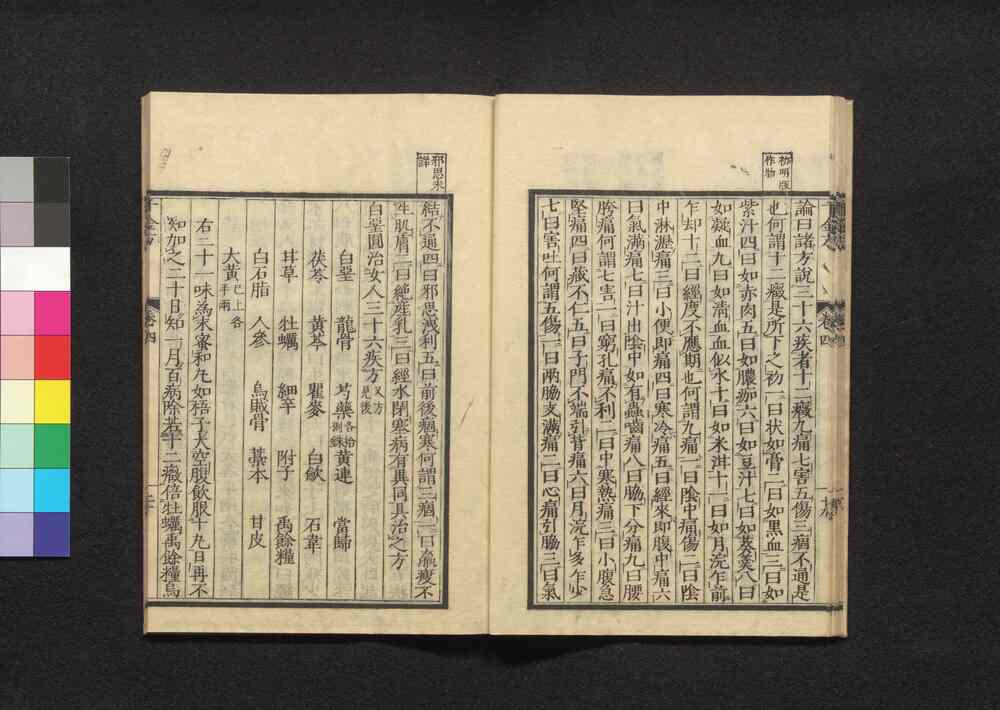 初明版
作物
論曰諸方說三十六疾者十二癥九痛七害五傷三痼不通是
也何謂十二癥是所下之物一曰狀如膏二曰如黑血三曰如
紫汁四曰如赤肉五曰如膿痂六曰如豆汁七曰如葵羹八曰
如凝血九曰如淸血血似水十曰如米泔十一曰如月浣乍前
乍却十二曰經度不應期也何謂九痛一曰陰中痛傷二曰陰
中淋瀝痛三曰小便卽痛四曰寒冷痛五曰經來卽腹中痛六
曰氣滿痛七曰汁出陰中如有蟲嚙痛八曰脇下分痛九曰腰
胯痛何謂七害一曰窮孔痛不利二曰中寒熱痛三曰小腹急
堅痛四曰藏不仁五曰子門不端引背痛六曰月浣乍多乍少
七曰害吐何謂五傷一曰兩脇支滿痛二曰心痛引脇三曰氣
邪思未
詳
結不通四曰邪思洩利五曰前後痼寒何謂三痼一曰羸瘦不
生肌膚二曰絶產乳三曰經水閉塞病有異同具治之方
白堊圓治女人三十六疾方又方
見後
白堊 龍骨 芍藥各拾
捌銖黃連 當歸
茯苓 黃芩 瞿麥 白斂 石韋
甘草 牡蠣 細辛 附子 禹餘糧
白石脂 人參 烏賊骨 藁本 甘皮
大黃已上各
半兩
右二十一味爲末蜜和丸如梧子大空腹飮服十丸日再不
知加之二十日知一月百病除若十二癥倍牡蠣禹餘糧烏